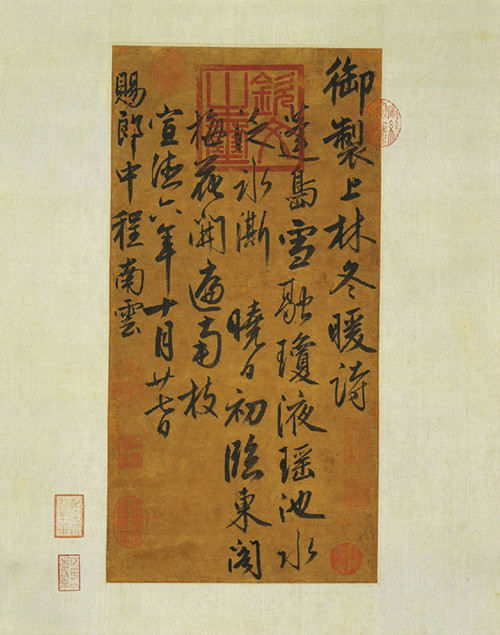 御製上林冬暖詩
蓬島雪融瓊液瑶池水
泛冰澌 曉日初臨東閣
梅花開遍南枝
宣德六年十月廿七日
賜郎中程南雲
欽文
之璽